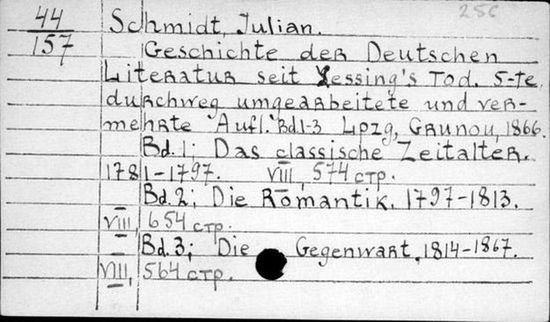 256
44
157
Schmidt, Julian.
Geschichte der Deutschen
Literatur seit Lessing's Tod. 5-te,
durchweg umgearbeitete und ver-
mehrte Aufl. Bd1-3 Lpzg, Grunow, 1866.
Bd. 1; Das classische Zeitalter.
1781-1797. VIII, 574 стр.
Bd. 2; Die Romantik. 1797-1813.
VIII, 654 стр.
Bd. 3; Die Gegenwart, 1814-1867.
VIII, 564 стр.